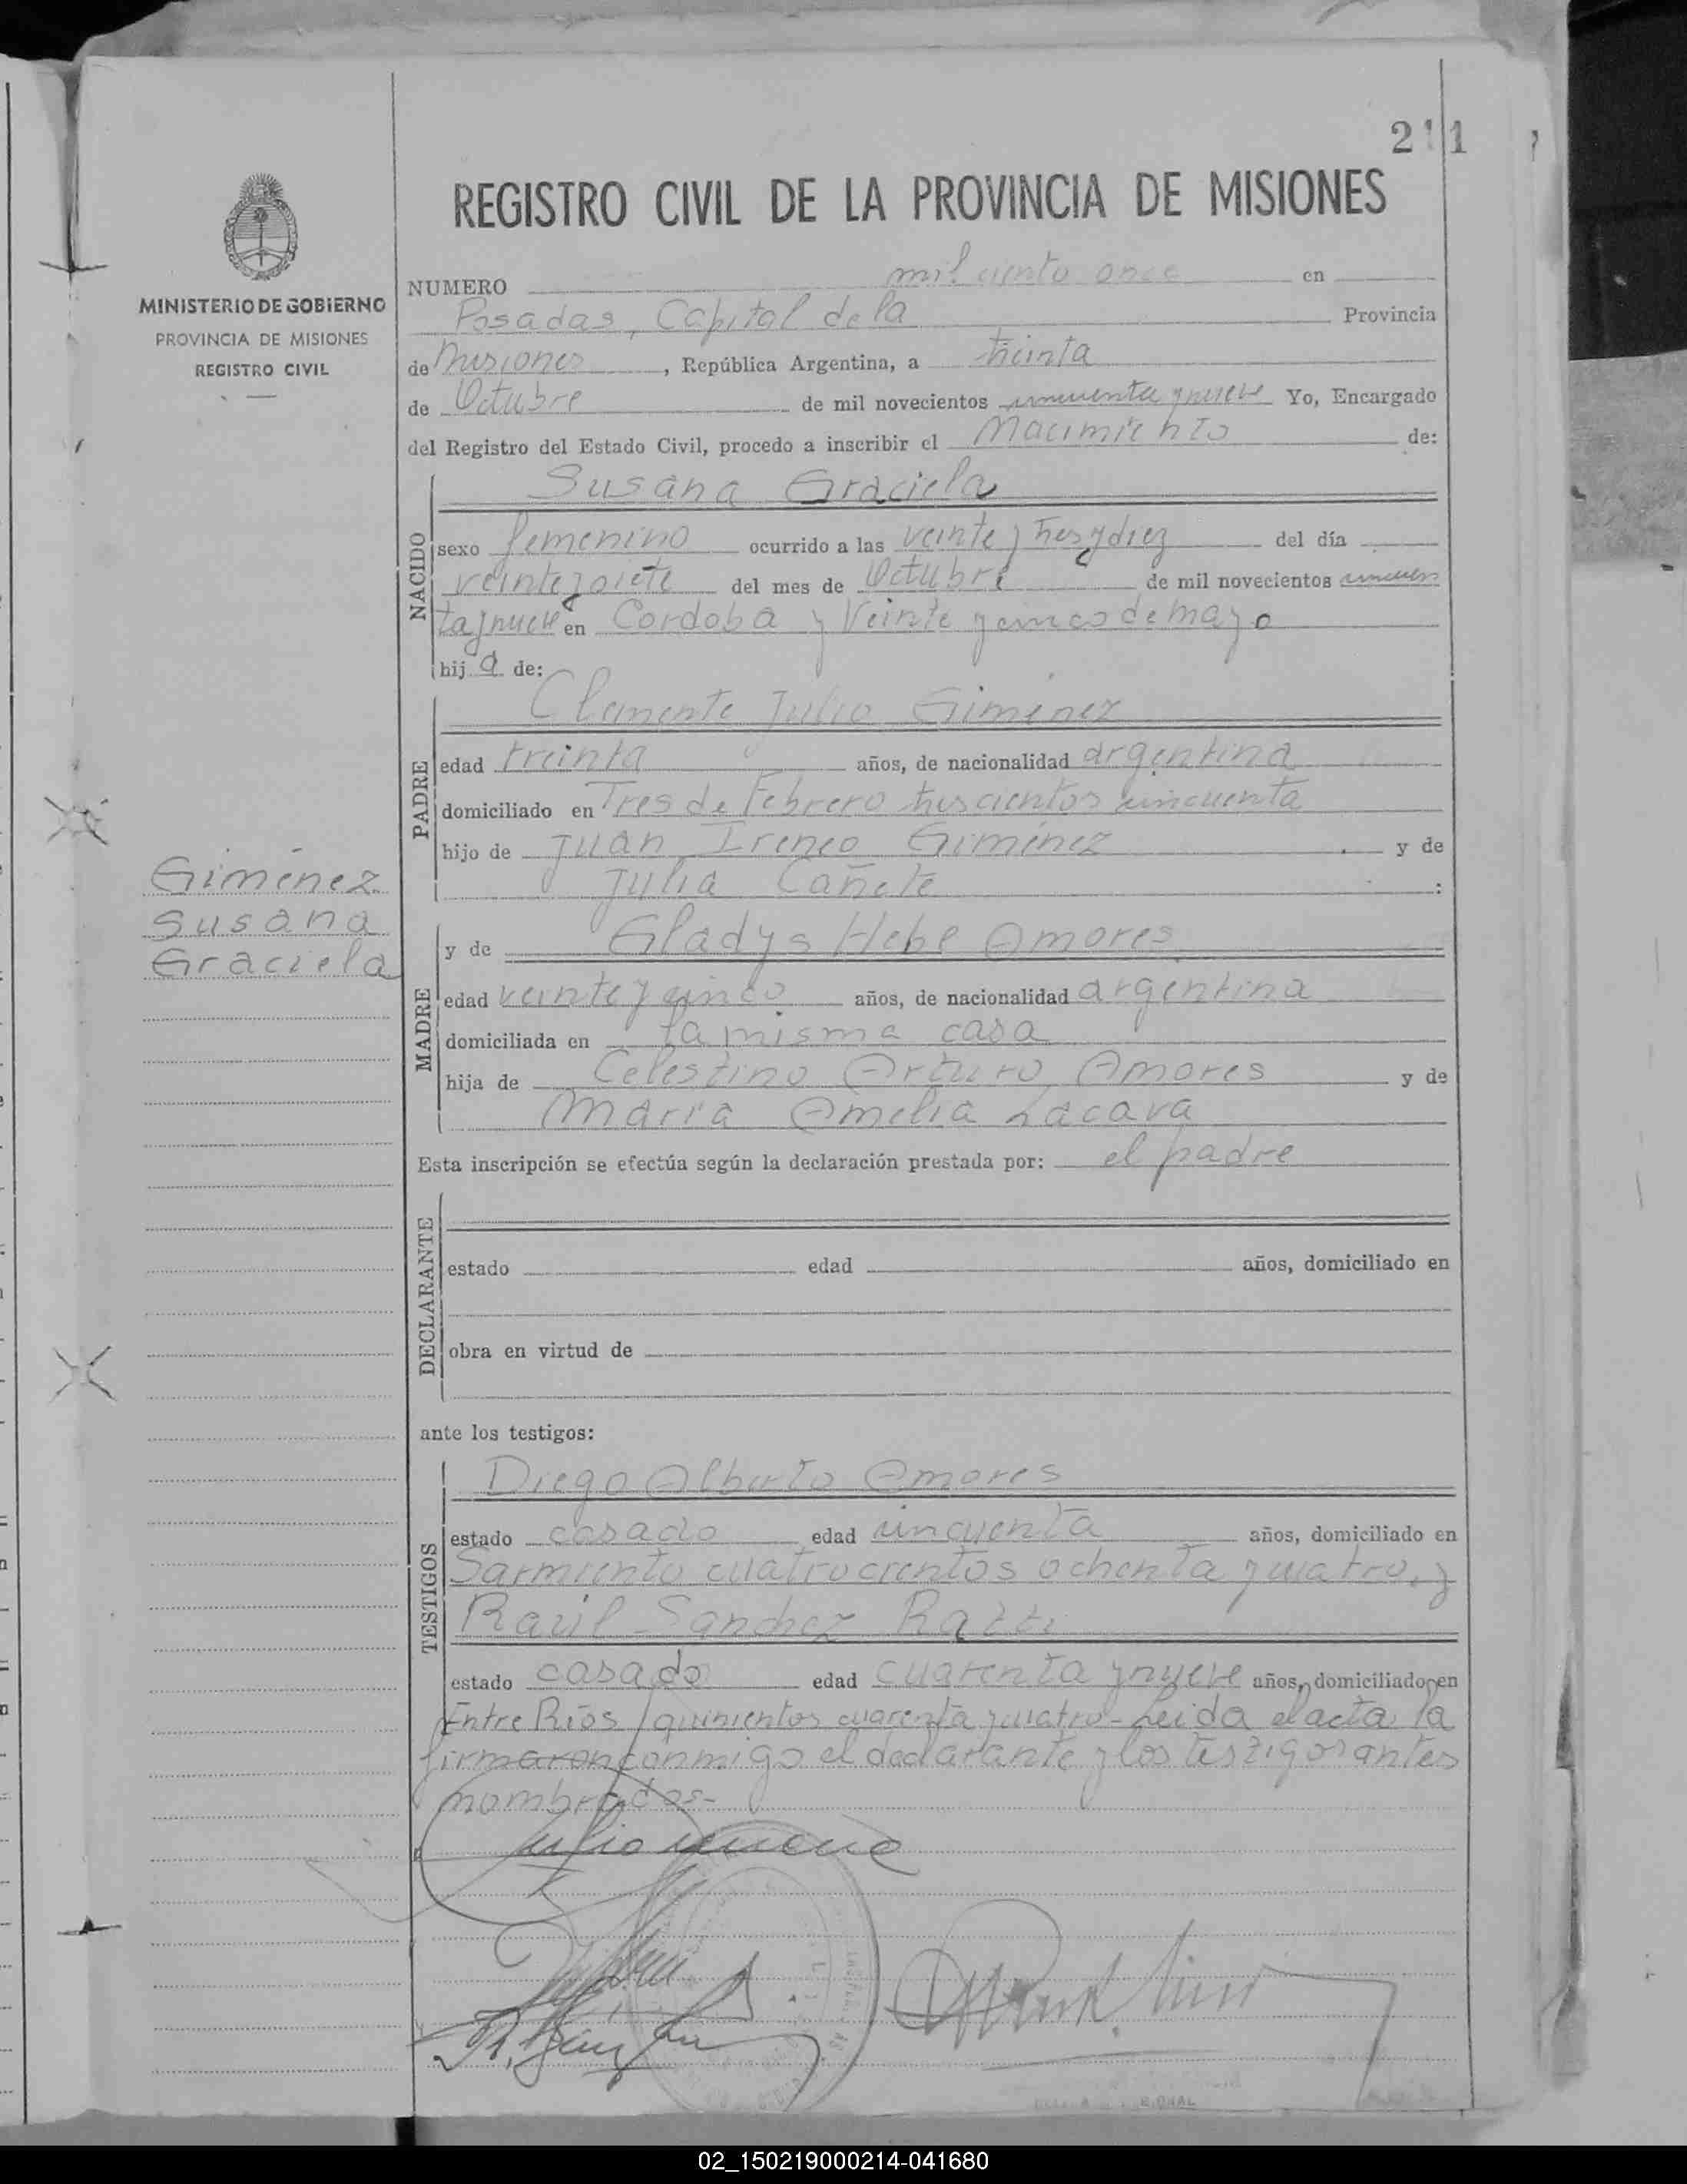 211
REGISTRO CIVIL DE LA PROVINCIA DE MISIONES
MINISTERIO DE GOBIERNO
PROVINCIA DE MISIONES
REGISTRO CIVIL
NUMERO mil ciento once en
Posadas, Capital de la Provincia
de Misiones, República Argentina, a treinta
de Octubre de mil novecientos cincuenta y nueve Yo, Encargado
del Registro del Estado Civil, procedo a inscribir el Nacimiento de:
NACIDO
Susana Graciela
sexo femenino ocurrido a las veinte y tres y diez del día
veinte y siete del mes de Octubre de mil novecientos cincuen
ta y nueve en Cordoba y Veinte y cinco de mayo
hija de:
PADRE
Clemente Julio Giménez
edad treinta años, de nacionalidad argentina
domiciliado en Tres de Febrero trescientos cincuenta
hijo de Juan Ireneo Giménez y de
Julia Cañete :
Giménez
Susana
Graciela
MADRE
y de Gladys Hebe Amores
edad veinte y cinco años, de nacionalidad argentina
domiciliada en la misma casa
hija de Celestino Arturo Amores y de
María Amelia Lacava
Esta inscripción se efectúa según la declaración prestada por: el padre
DECLARANTE
estado edad años, domiciliado en
obra en virtud de
ante los testigos:
TESTIGOS
Diego Alberto Amores
estado casado edad cincuenta años, domiciliado en
Sarmiento cuatrocientos ochenta y cuatro, y
Raúl Sanchez Ratti
estado casado edad cuarenta y nueve años, domiciliado en
Entre Ríos quinientos cuarenta y cuatro - Leida el acta la
firmaron conmigo el declarante y los testigos antes
nombrados-
02_150219000214-041680